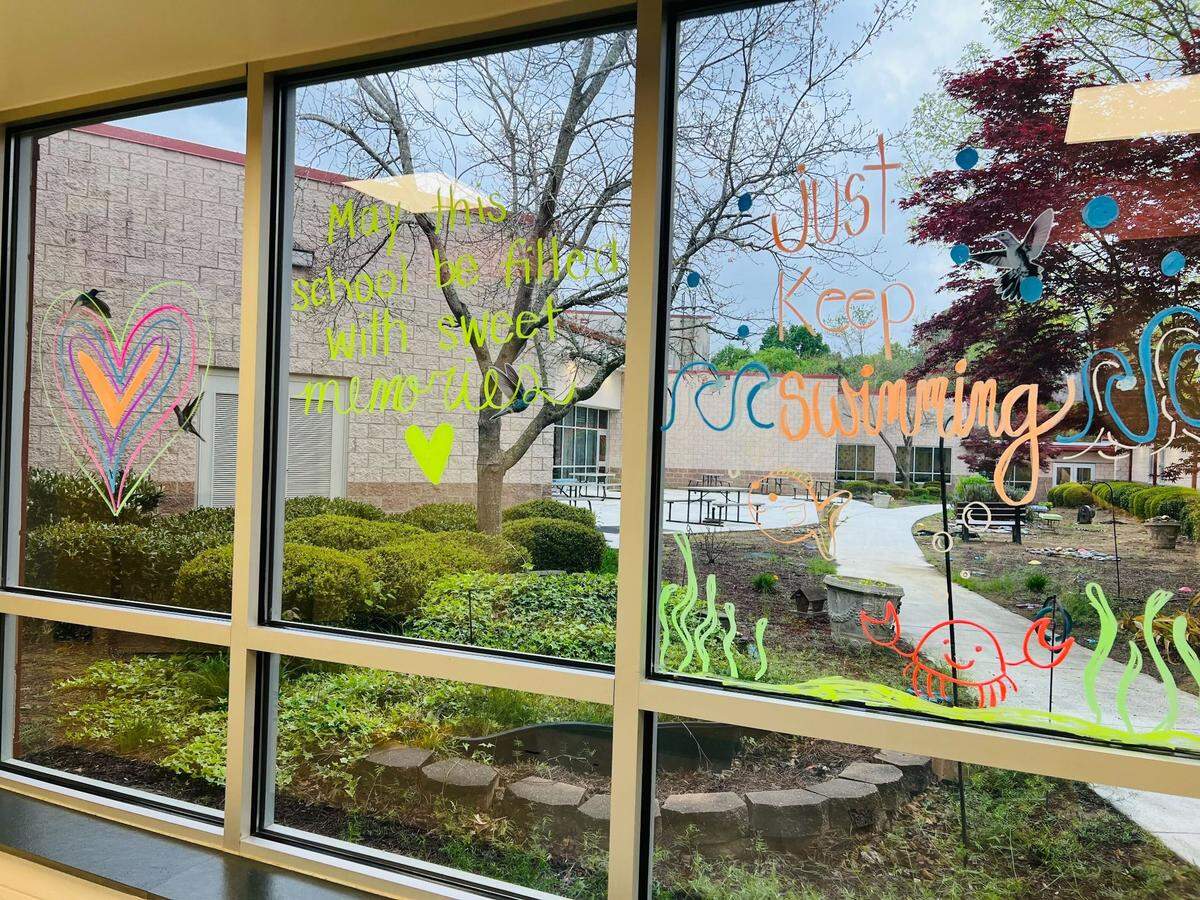 May this
school be filled
with sweet
memories
just
Keep
swimming